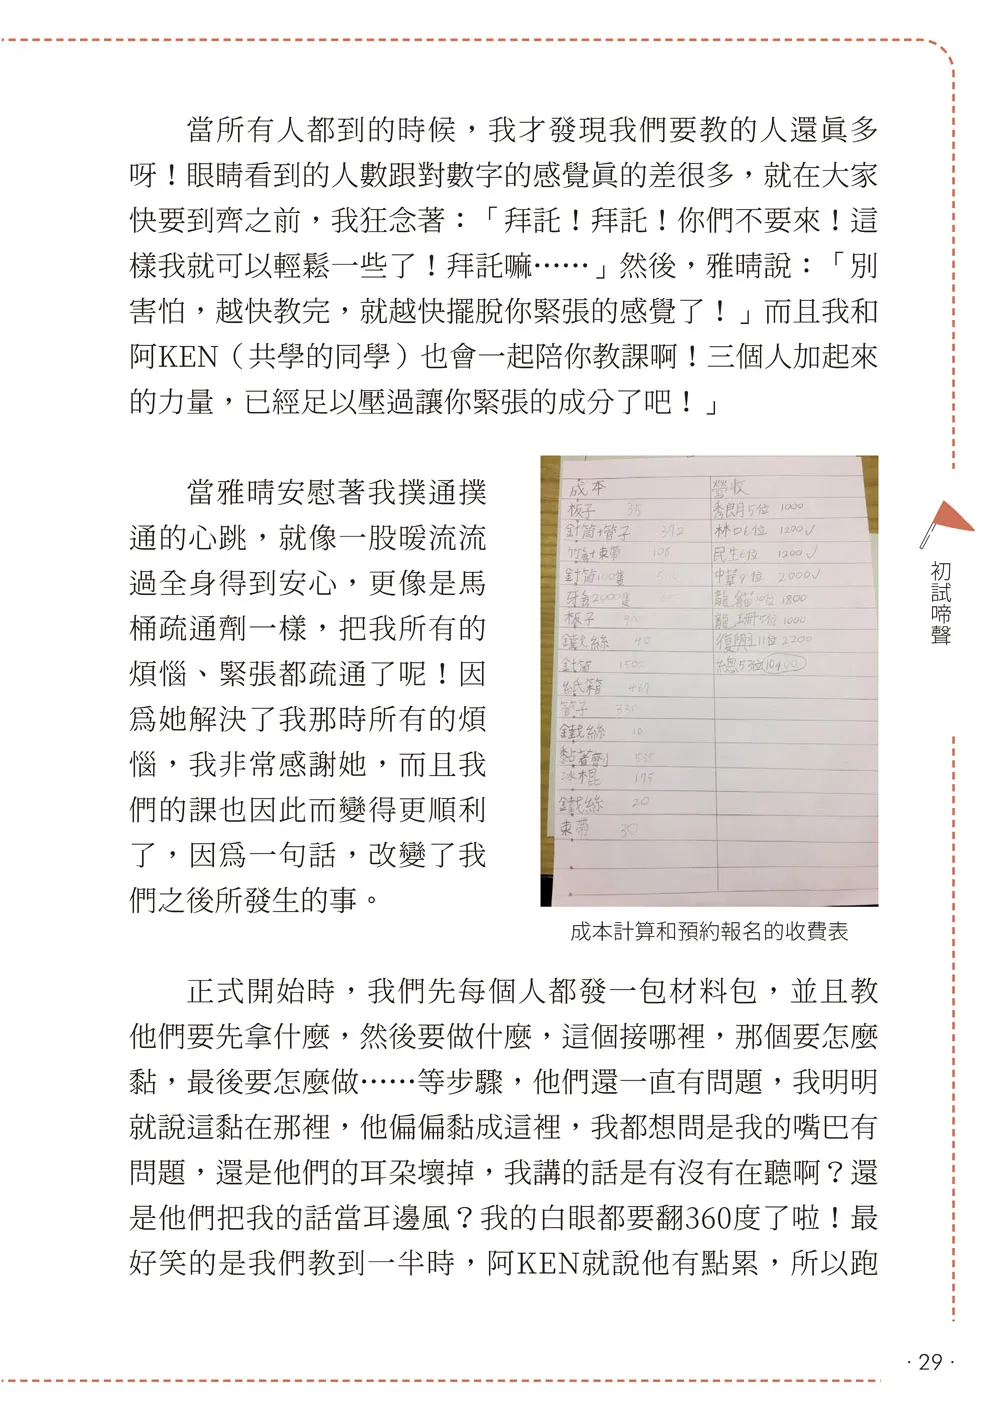 當所有人都到的時候，我才發現我們要教的人還眞多
呀！眼睛看到的人數跟對數字的感覺眞的差很多，就在大家
快要到齊之前，我狂念著：「拜託！拜託！你們不要來！這
樣我就可以輕鬆一些了！拜託嘛⋯⋯」然後，雅晴說：「別
害怕，越快教完，就越快擺脫你緊張的感覺了！」而且我和
阿KEN（共學的同學）也會一起陪你教課啊！三個人加起來
的力量，已經足以壓過讓你緊張的成分了吧！」
當雅晴安慰著我撲通撲
通的心跳，就像一股暖流流
過全身得到安心，更像是馬
桶疏通劑一樣，把我所有的
煩惱、緊張都疏通了呢！因
爲她解決了我那時所有的煩
惱，我非常感謝她，而且我
們的課也因此而變得更順利
了，因爲一句話，改變了我
們之後所發生的事。
成本
板子 35
針筒+管子 372
竹針+束帶 108
針筒100隻
牙籤2000隻
板子 300
鐵絲 40
針筒 1500
紙箱 467
管子 330
鐵絲
黏著劑 535
冰棍 175
鐵絲 20
束帶 30
營收
秀朗5位 1000
林口6位 1200✓
民生6位 1200✓
中華9位 2000✓
龍 1800
龍 5位 1000
復興11位 2200
總53位 10400
成本計算和預約報名的收費表
正式開始時，我們先每個人都發一包材料包，並且教
他們要先拿什麼，然後要做什麼，這個接哪裡，那個要怎麼
黏，最後要怎麼做⋯⋯等步驟，他們還一直有問題，我明明
就說這黏在那裡，他偏偏黏成這裡，我都想問是我的嘴巴有
問題，還是他們的耳朵壞掉，我講的話是有沒有在聽啊？還
是他們把我的話當耳邊風？我的白眼都要翻360度了啦！最
好笑的是我們教到一半時，阿KEN就說他有點累，所以跑
初試啼聲
· 29 ·